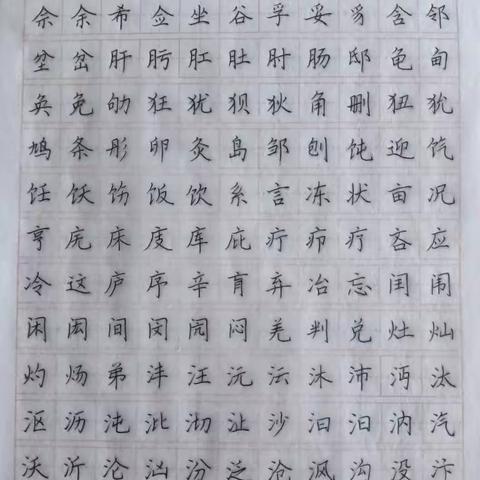 佘余希佥坐谷孚妥豸含邻
坌岔肝肟肛肚肘肠邸龟甸
奂免劬狂犹狈狄角删狃狁
鸠条彤卵灸岛邹刨饨迎饩
饪饫饬饭饮系言冻状亩况
亨庑床庋库庇疔疖疗吝应
冷这庐序辛肓弃冶忘闰闱
闲闳间闵闶闷羌判兑灶灿
灼炀弟沣汪沅沄沐沛沔汰
沤沥沌沘沏沚沙汩汨汭汽
沃沂沦汹汾泛沧沨沟没汴